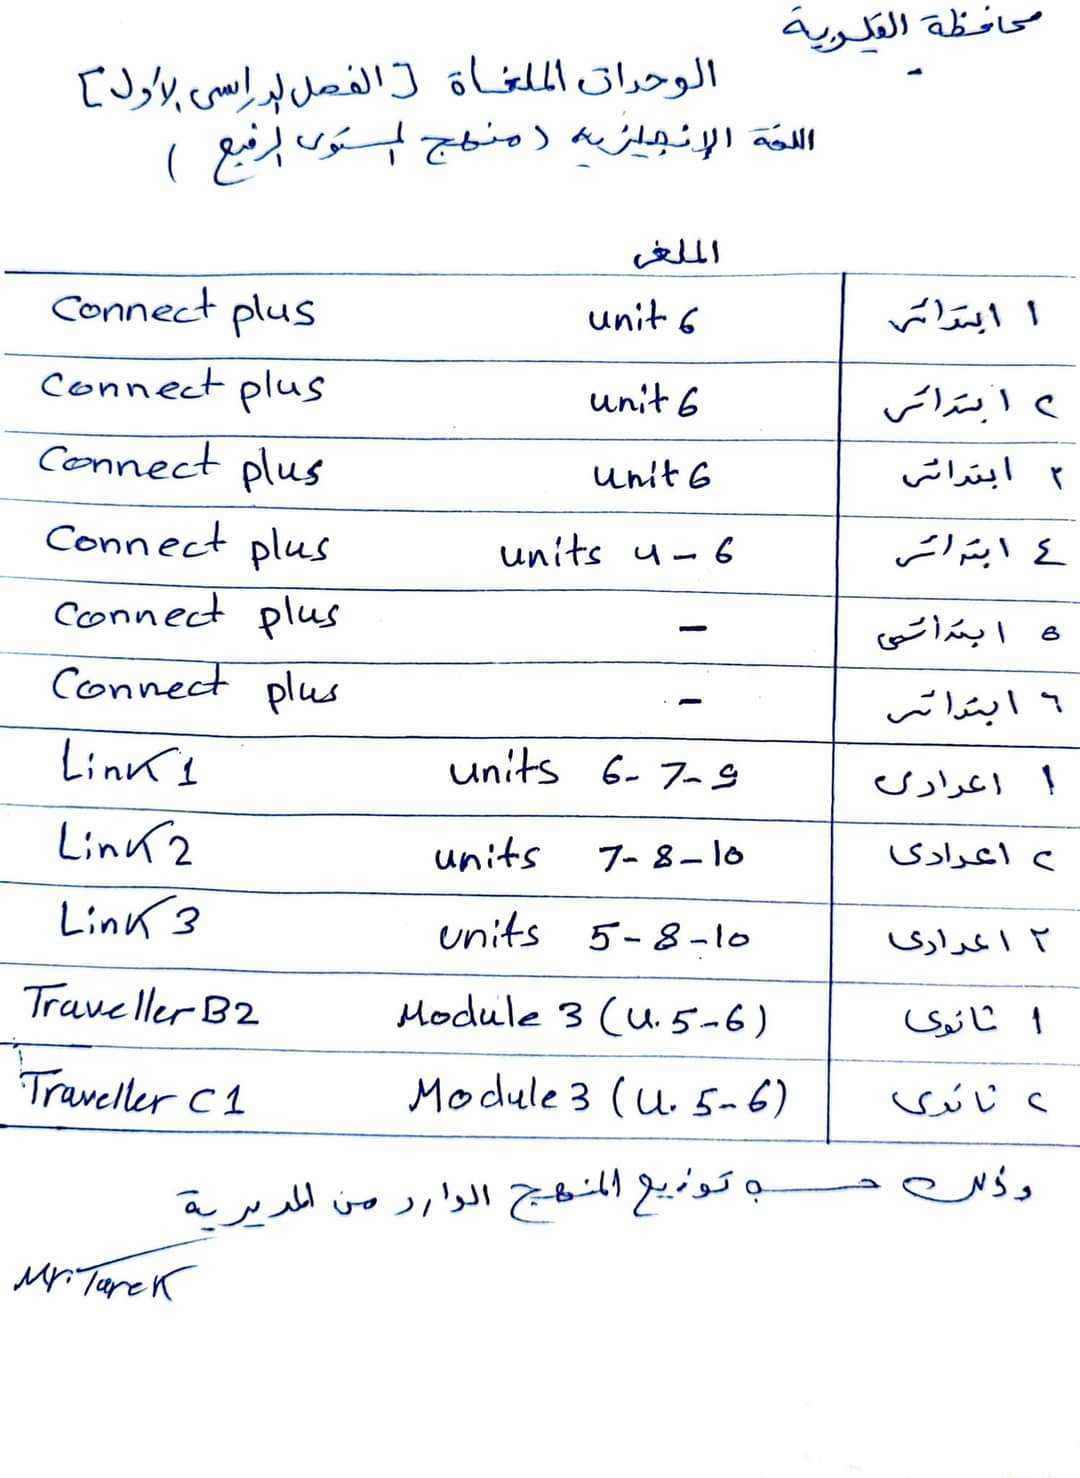 محافظة القليوبية
الوحدات الملغاة [الفصل الدراسى الأول]
اللغة الإنجليزية (منهج المستوى الرفيع)
الملغى
١ ابتدائى unit 6 Connect plus
٢ ابتدائى unit 6 Connect plus
٣ ابتدائى unit 6 Connect plus
٤ ابتدائى units 4 - 6 Connect plus
٥ ابتدائى - Connect plus
٦ ابتدائى - Connect plus
١ اعدادى units 6-7-9 Link 1
٢ اعدادى units 7-8-10 Link 2
٣ اعدادى units 5-8-10 Link 3
١ ثانوى Module 3 (U. 5-6) Traveller B2
٢ ثانوى Module 3 (U. 5-6) Traveller C1
وذلك حسب توزيع المنهج الوارد من المديرية
Mr. Tarek